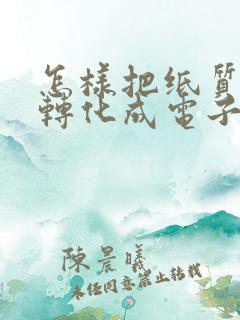 怎樣把纸質
轉化成電子
陳晨曦
未经同意禁止转载